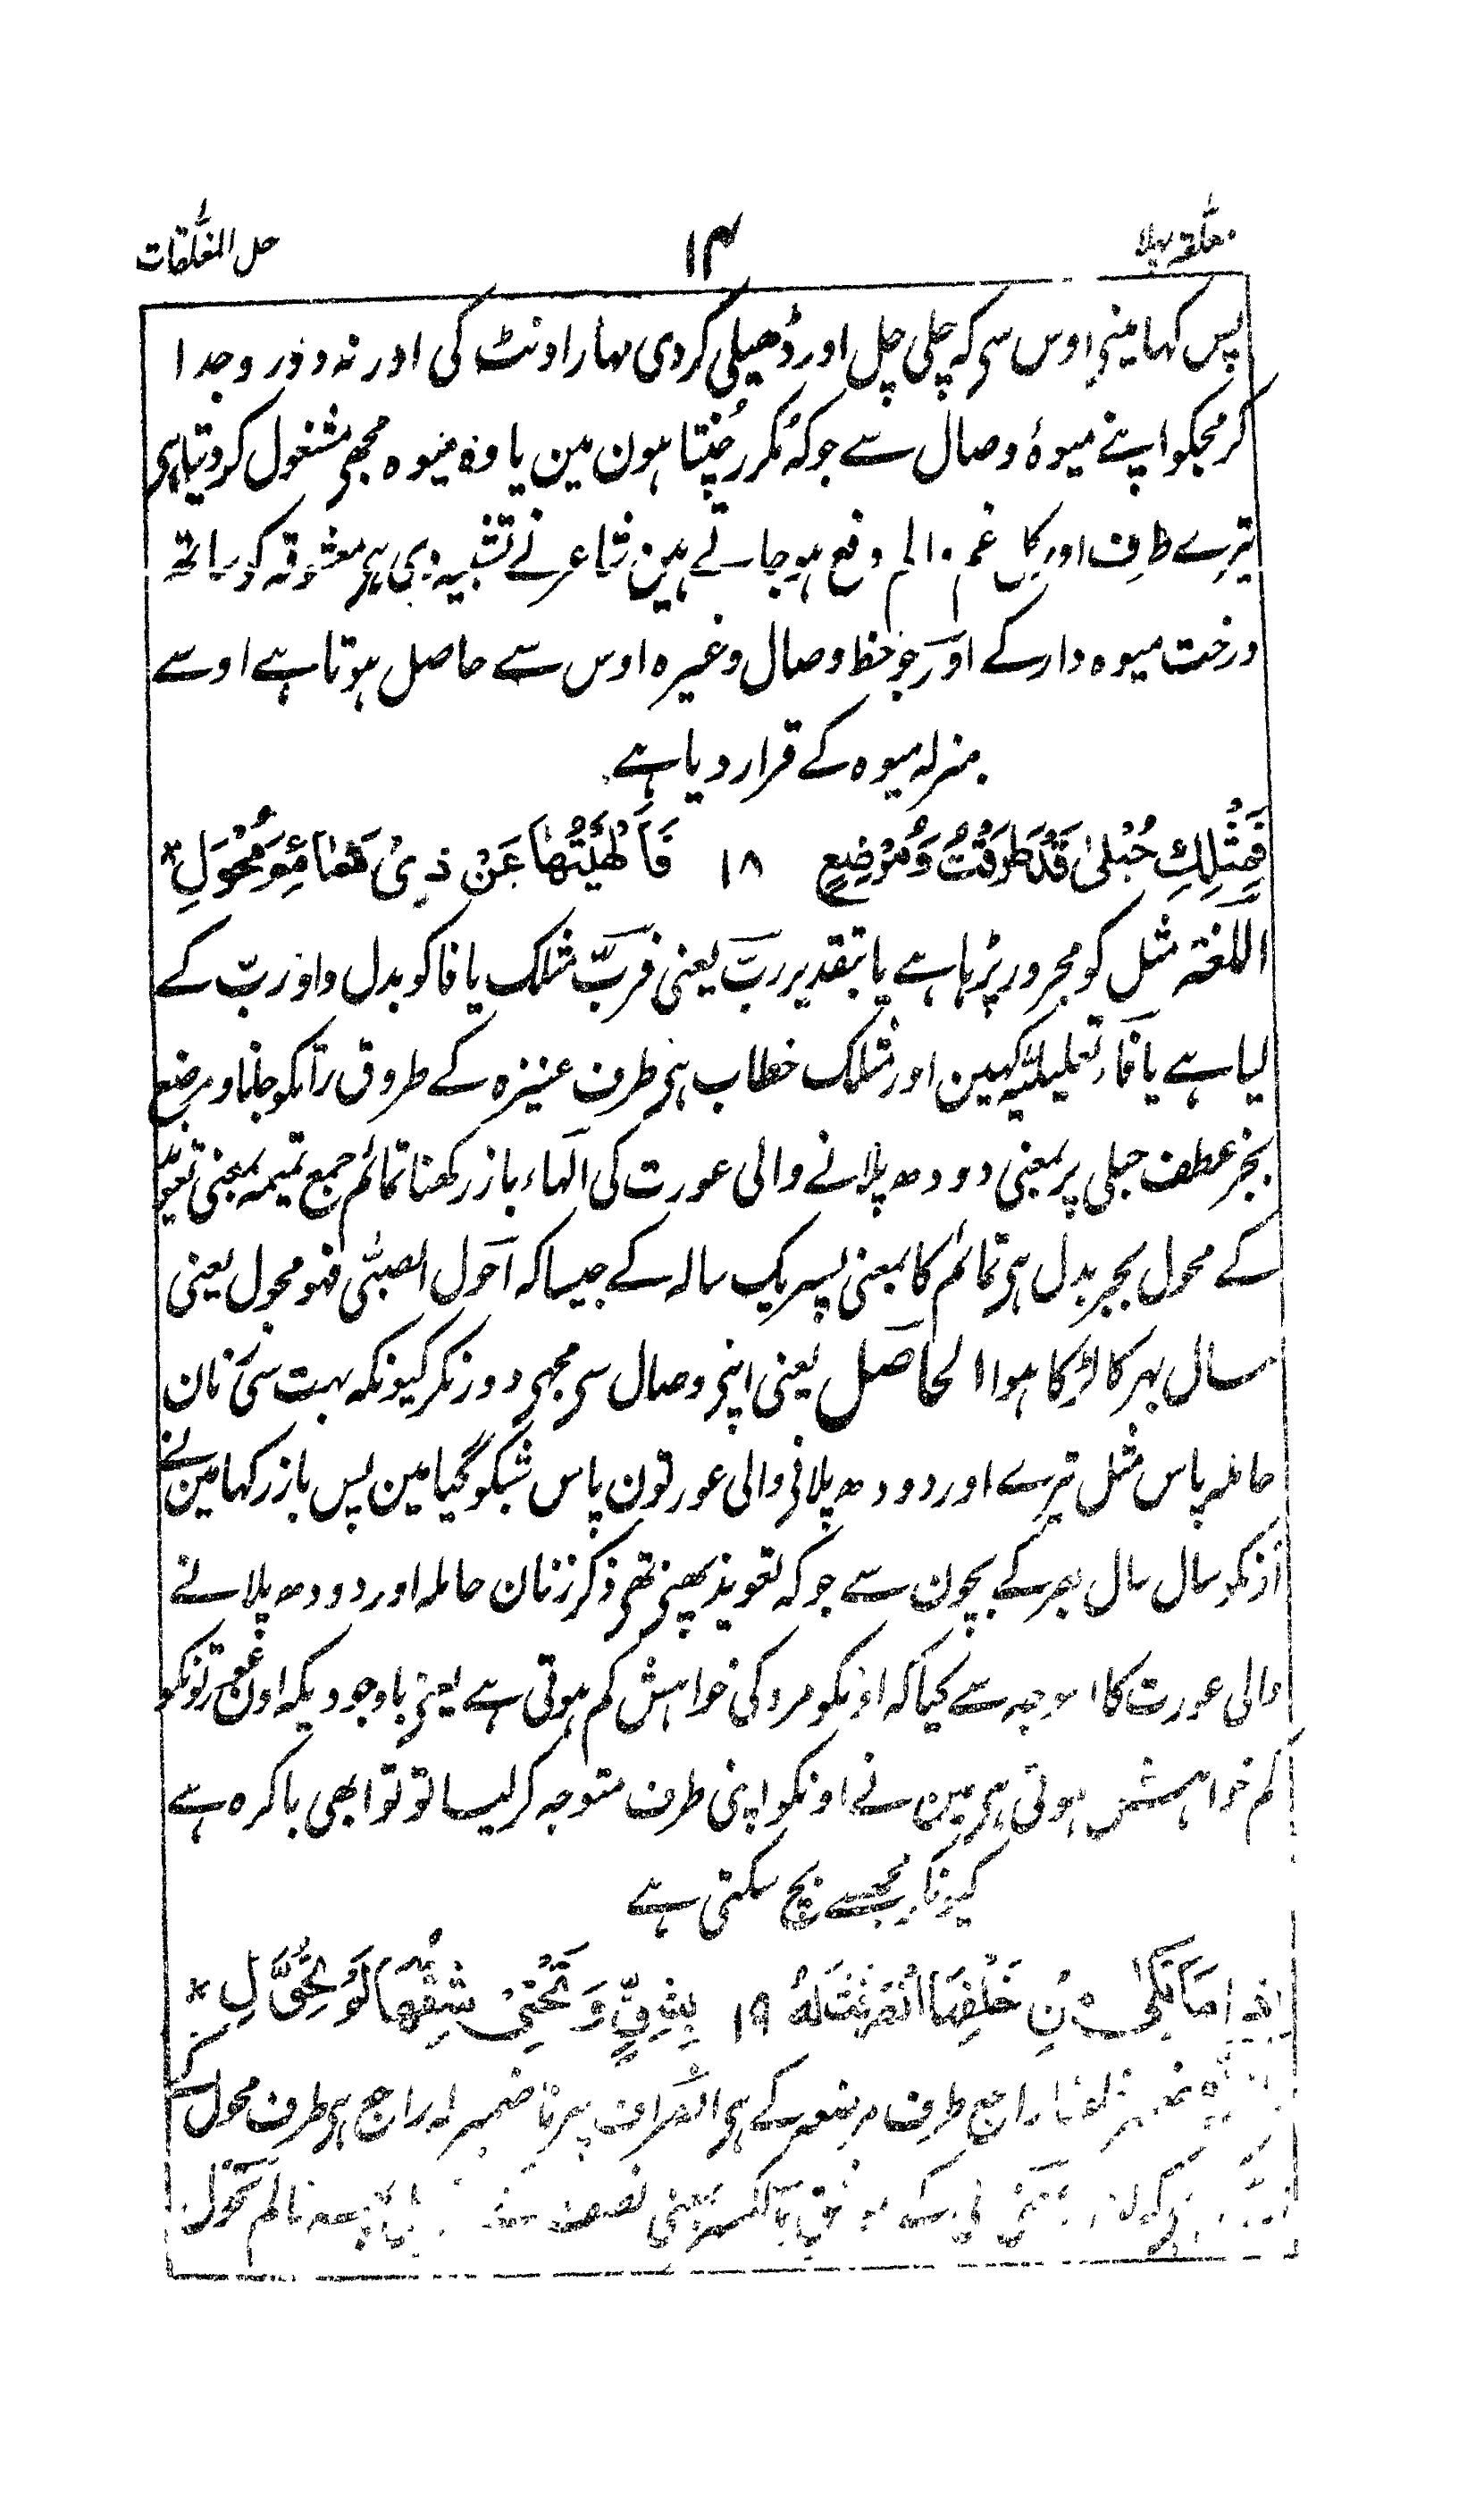 معلقہ پہلا ۱۴ حل المعلقات
پس کہا مینے اوس سی کہ چلی چل اور ڈھیلی کر دی مہار اونٹ کی اور نہ دور و جدا
کر مجکو اپنے میوۂ وصال سے جو کہ مکرر چنتا ہون مین یا وہ میوہ مجھی مشغول کر دیتا ہی
تیرے طرف اور کل غم و الم دفع ہو جاتے ہین شاعر نے تشبیہ دی ہی معشوقہ کو ساتھ
درخت میوہ دار کے اور جو حظ وصال وغیرہ اوس سے حاصل ہوتا ہے اوسے
بمنزلہ میوہ کے قرار دیا ہے
فَمِثْلِكِ حُبْلىٰ قَدْ طَرَقْتُ وَمُرْضِعٍ ۱۸ فَاَلْهَيْتُهَا عَنْ ذِيْ تَمَائِمَ مُحْوَلِ*
اللغۃ مثل کو مجرور پڑہا ہے یا بتقدیر ربَّ یعنی فربَّ مثلک یا فا کو بدل واو ربّ کے
لیا ہے یا فاء تعلیلیّہ کہین اور مثلک خطاب ہی طرف عنیزہ کے طروق راتکو جانا و مرضع
بجر عطف حبلی پر بمعنی دودھ پلانے والی عورت کی الہاء باز رکھنا تمائم جمع تمیمہ بمعنی تعویذ
کے محول بجر بدل ہی تمائم کا بمعنی پسر یک سالہ کے جیسا کہ احول الصبیّ فہو محول یعنی
سال بہر کا لڑکا ہوا الحاصل یعنی اپنی وصال سی مجہی دور نکر کیونکہ بہت سی زنان
حاملہ پاس مثل تیرے اور دودھ پلانی والی عورتون پاس شبکو گیا مین پس باز رکہا مین نے
اونکو سال سال بھر کے بچون سے جو کہ تعویذ پہنی تھی ذکر زنان حاملہ اور دودھ پلانے
والی عورت کا اسوجہ سے کیا کہ اونکو مرد کی خواہش کم ہوتی ہے یعنی باوجودیکہ اون عورتونکو
کم خواہش ہوتی ہی مین نے اونکو اپنی طرف متوجہ کر لیا تو تو ابھی باکرہ ہے
کیونکر مجسے بچ سکتی ہے
اِذَا مَا بَكٰى مِنْ خَلْفِهَا انْصَرَفَتْ لَهُ ۱۹ بِشِقٍّ وَتَحْتِيْ شِقُّهَا لَمْ يُحَوَّلِ*
ضمیر خلفہا راجع طرف مرضعہ کے ہی انصراف پہرنا ضمیر لہ راجع ہی طرف محول کے
شق بالکسر بمعنی نصف لم یحول